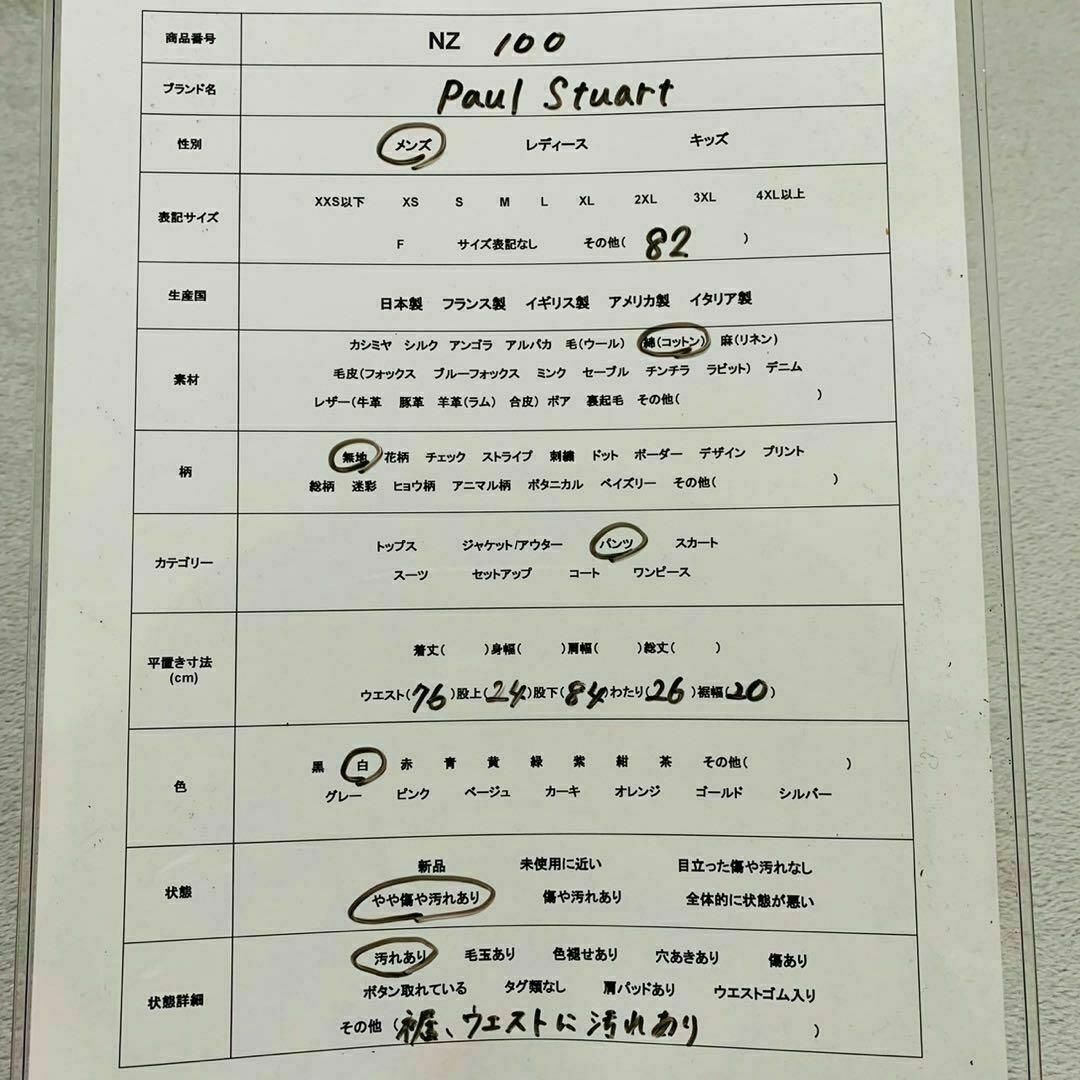 商品番号 NZ 100
ブランド名 Paul Stuart
性別 メンズ レディース キッズ
XXS以下 XS S M L XL 2XL 3XL 4XL以上
表記サイズ
F サイズ表記なし その他( 82 )
生産国 日本製 フランス製 イギリス製 アメリカ製 イタリア製
カシミヤ シルク アンゴラ アルパカ 毛(ウール) 綿(コットン) 麻(リネン)
素材 毛皮(フォックス ブルーフォックス ミンク セーブル チンチラ ラビット) デニム
レザー(牛革 豚革 羊革(ラム) 合皮) ボア 裏起毛 その他( )
無地 花柄 チェック ストライプ 刺繍 ドット ボーダー デザイン プリント
柄
総柄 迷彩 ヒョウ柄 アニマル柄 ボタニカル ペイズリー その他( )
トップス ジャケット/アウター パンツ スカート
カテゴリー
スーツ セットアップ コート ワンピース
着丈( )身幅( )肩幅( )総丈( )
平置き寸法
(cm)
ウエスト(76)股上(24)股下(84)わたり(26)裾幅(20)
黒 白 赤 青 黄 緑 紫 紺 茶 その他( )
色
グレー ピンク ベージュ カーキ オレンジ ゴールド シルバー
新品 未使用に近い 目立った傷や汚れなし
状態
やや傷や汚れあり 傷や汚れあり 全体的に状態が悪い
汚れあり 毛玉あり 色褪せあり 穴あきあり 傷あり
状態詳細 ボタン取れている タグ類なし 肩パッドあり ウエストゴム入り
その他 (裾、ウエストに汚れあり )